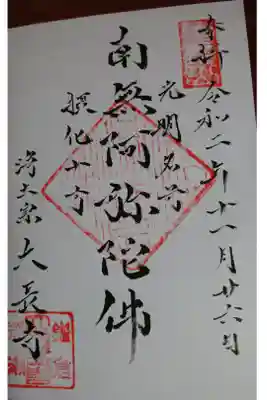 奉拝 令和二年十一月廿六日
光明名号
南無阿弥陀佛
摂化十方
浄土宗 大長寺